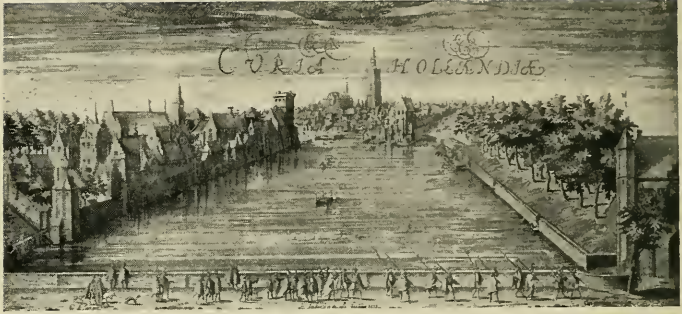 CVRIA HOLLANDIÆ